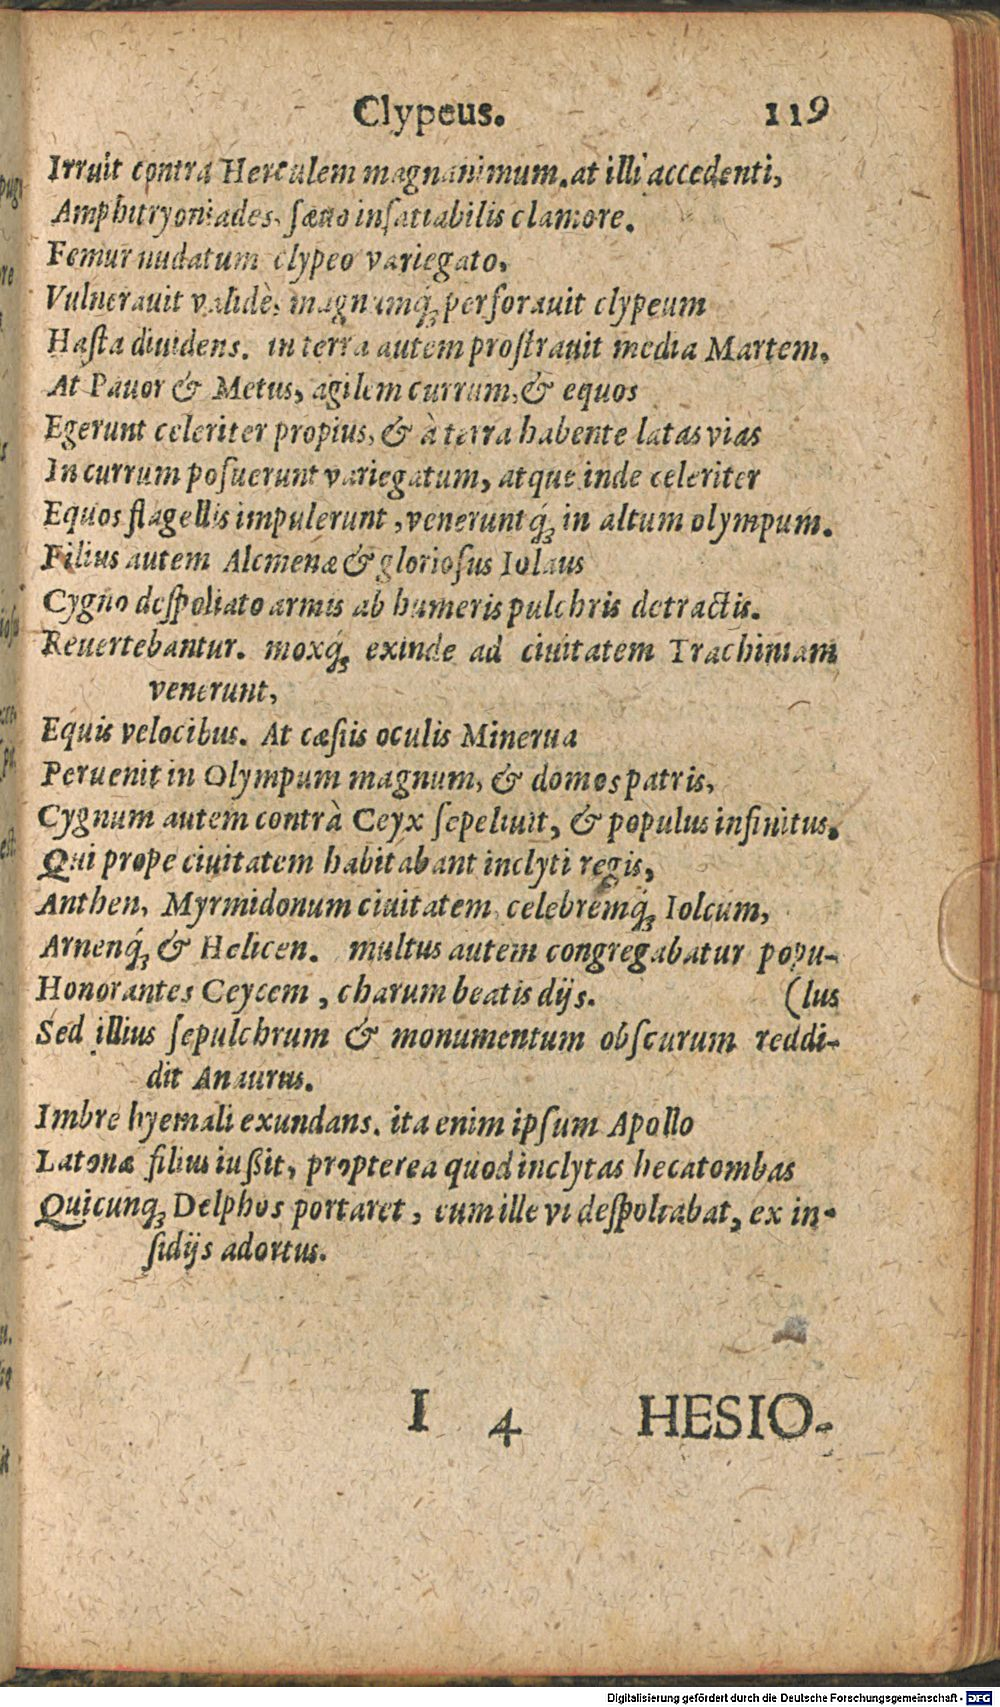 Clypeus. 119
Irruit contra Herculem magnanimum. at illi accedenti,
Amphitryoniades, sæuo insatiabilis clamore.
Femur nudatum clypeo variegato,
Vulnerauit validè, magnumq́; perforauit clypeum
Hasta diuidens. in terra autem prostrauit media Martem.
At Pauor & Metus, agilem currum, & equos
Egerunt celeriter propius, & à terra habente latas vias
In currum posuerunt variegatum, atque inde celeriter
Equos flagellis impulerunt, venerunt q́; in altum olympum.
Filius autem Alcmenæ & gloriosus Iolaus
Cygno despoliato armis ab humeris pulchris detractis.
Reuertebantur. moxq́; exinde ad ciuitatem Trachiniam
venerunt,
Equis velocibus. At cæsiis oculis Minerua
Peruenit in Olympum magnum, & domos patris,
Cygnum autem contrà Ceyx sepeliuit, & populus infinitus.
Qui prope ciuitatem habitabant inclyti regis,
Anthen, Myrmidonum ciuitatem, celebremq́; Iolcum,
Arnenq́; & Helicen. multus autem congregabatur popu-
Honorantes Ceycem, charum beatis dijs. (lus
Sed illius sepulchrum & monumentum obscurum reddi-
dit Anaurus.
Imbre hyemali exundans. ita enim ipsum Apollo
Latonæ filius iußit, propterea quod inclytas hecatombas
Quicunq; Delphos portaret, eum ille vi despoliabat, ex in-
sidijs adortus.
I 4 HESIO-
Digitalisierung gefördert durch die Deutsche Forschungsgemeinschaft - DFG